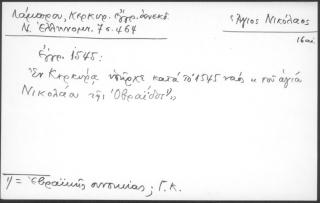 Λάμπρου, Κερκυρ. ἔγγρ. ἀνεκδ.
Ν. Ἑλληνομν. 7ς. 464
Ἅγιος Νικόλαος
16 αἰ.
Ἔγγρ. 1545:
Ἐν Κερκύρᾳ ὑπῆρχε κατὰ τὸ 1545 ναὸς « τοῦ ἁγίου
Νικολάου τῆς Ὀβραϊδος¹⁾»
1) = Ἑβραϊκῆς συνοικίας; Γ. Κ.